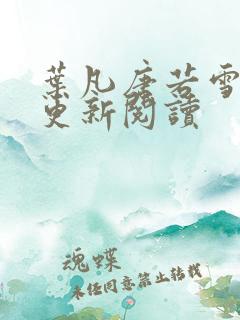 葉凡唐若雪
更新閱讀
魂蝶
未经同意禁止转载